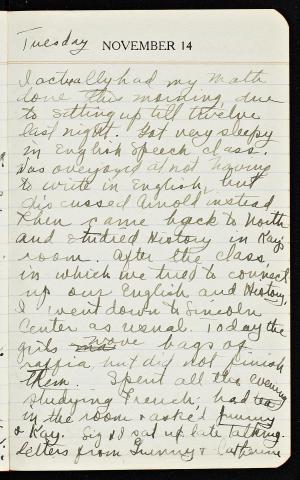 Tuesday
NOVEMBER 14
I actually had my math
done this morning, due
to sitting up till twelve
last night. Got very sleepy
in English Speech class.
Was overjoyed at not having
to write in English, but
discussed Arnold instead.
Then came back to North
and studied History in Kay's
room. After the class,
in which we tried to connect
up our English and History,
I went down to Lincoln
Center as usual. Today the
girls wove bags of
raffia, but did not finish
them. Spent all the evening
studying French; had
in the room
& Kay. Sig & I sat up late talking.
Letters from & Catherine